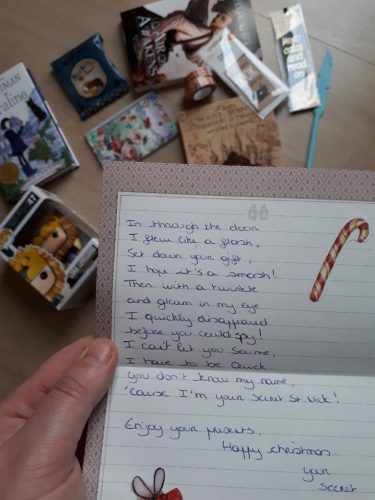 AWAKENS
Keep
calm and
read
on
41
In through the door
I flew like a flash.
Set down your gift,
I hope it's a smash!
Then with a twinkle
and gleam in my eye
I quickly disappeared
before you could spy!
I can't let you see me,
I have to be Quick
you don't know my name,
'cause I'm your secret St. Nick!
Enjoy your presents,
Happy christmas
your
secret